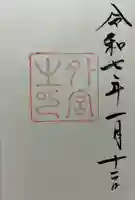 令和七年一月十二日
外宮之印